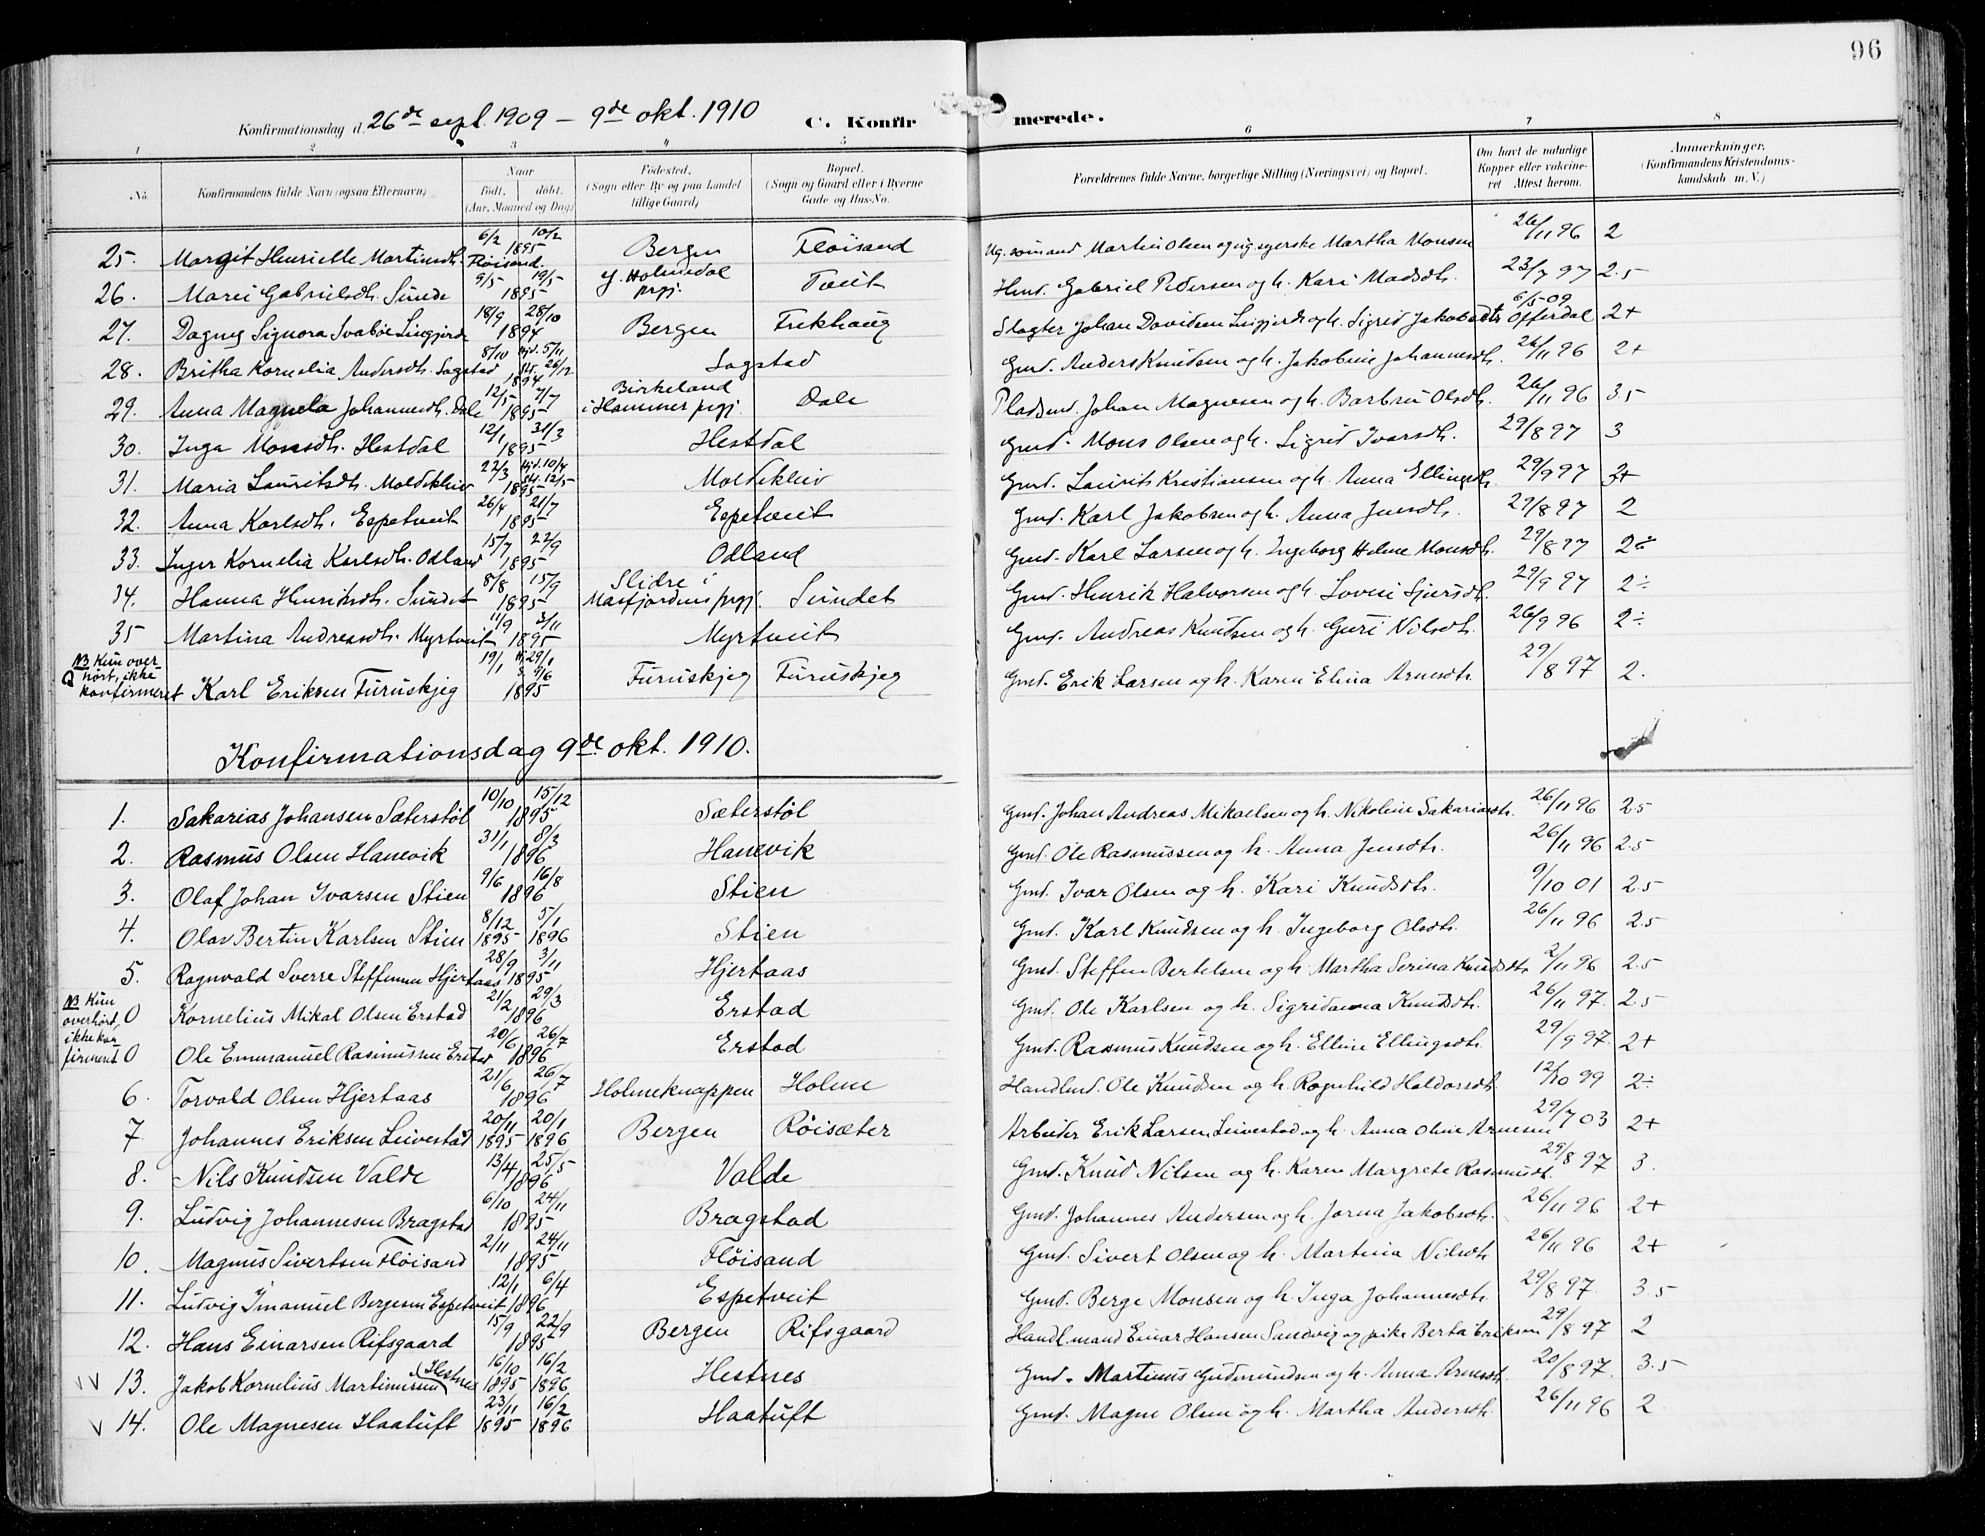 96
Konfirmationsdag d. 26de sept. 1909 – 9de okt. 1910 C. Konfirmerede.
1 2 3 4 5 6 7 8
No. Konfirmandens fulde Navn (ogsaa Efternavn) Naar Født, døbt. (Aar, Maaned og Dag) Fødested. (Sogn eller By og paa Landet tillige Gaard) Bopæl. (Sogn og Gaard eller i Byerne Gade og Hus-No. Forældrenes fulde Navne, borgerlige Stilling (Næringsvei) og Bopæl. Om havt de naturlige Kopper eller vakcineret Attest herom. Anmærkninger. (Konfirmandens Kristendomskundskab m. V.)
25. Margit Henriette Martinsdtr. Fløisand. 6/2 10/2 1895 Bergen Fløisand Ug. sømand Martin Olsen og ug. syerske Martha Monsen 26/11 96 2
26. Marie Gabrielsdtr. Sunde 9/5 19/5 1895 Y. Holmedal prgj. Tveit Hmd. Gabriel Pedersen og h. Kari Madsdtr. 23/7 97 2.5
27. Dagny Signora Svabøe Lingjerde 18/9 28/10 1894 Bergen Frekhaug Slagter Johan Davidsen Lingjerde og h. Sigrid Jakobsdtr. Offerdal 6/5-09 2+
28. Britha Kornelia Andersdtr. Sagstad 8/10 hjd. 5/11 st. 26/12 1894 Sagstad Gmd. Anders Knudsen og h. Jakobine Johannesdtr. 26/11 96 2+
29. Anna Magnela Johannesdtr. Dale 12/5 7/7 1895 Birkeland i Hammer prgj. Dale Pladsmd. Johan Magnesen og h. Barbru Olsdtr. 26/11 96 3.5
30. Inga Monsdtr. Hestdal 12/1 31/3 1895 Hestdal Gmd. Mons Olsen og h. Sigrid Ivarsdtr. 29/8 97 3
31. Maria Lauritsdtr. Moldekleiv 22/3 hjd. 10/4 st. 12/5 1895 Moldekleiv Gmd. Laurits Kristiansen og h. Anna Ellingsdtr. 29/9 97 3+
32. Anna Karlsdtr. Espetveit 26/4 21/7 1895 Espetveit Gmd. Karl Jakobsen og h. Anna Jensdtr. 29/8 97 2
33. Inger Kornelia Karlsdtr. Odland 15/7 22/9 1895 Odland Gmd. Karl Larsen og h. Ingeborg Helene Monsdtr. 29/8 97 2÷
34. Hanna Henriksdtr. Sundet 8/8 15/9 1895 Slidre i Masfjordens prgj. Sundet Gmd. Henrik Halvorsen og h. Lovise Sjursdtr. 29/9 97 2÷
35 Martina Andreasdtr. Myrtveit 11/9 3/11 1895 Myrtveit Gmd. Andreas Knudsen og h. Guri Nilsdtr. 26/9 96 2÷
NB Kun overhørt, ikke konfirmeret 0 Karl Eriksen Furuskjeg 19/1 H. 29/1 S. 4/6 1895 Furuskjeg Furuskjeg Gmd. Erik Larsen og h. Karen Elina Arnesdtr. 29/8 97 2.
Konfirmationsdag 9de okt. 1910.
1. Sakarias Johansen Sæterstøl 10/10 15/12 1895 Sæterstøl Gmd. Johan Andreas Mikaelsen og h. Nikoline Sakariasdtr. 26/11 96 2.5
2. Rasmus Olsen Hanevik 31/1 8/3 1896 Hanevik Gmd. Ole Rasmussen og h. Anna Jensdtr. 26/11 96 2.5
3. Olaf Johan Ivarsen Stien 9/6 16/8 1896 Stien Gmd. Ivar Olsen og h. Kari Knudsdtr. 9/10 01 2.5
4. Olav Bertin Karlsen Stien 8/12 1895 5/1 1896 Stien Gmd. Karl Knudsen og h. Ingeborg Olsdtr. 26/11 96 2.5
5. Ragnvald Sverre Steffensen Hjertaas 28/9 3/11 1895 Hjertaas Gmd. Steffen Bertelsen og h. Martha Serina Knudsdtr. 2/11 96 2.5
NB Kun overhørt, ikke konfirmeret
0 Kornelius Mikal Olsen Erstad 21/2 29/3 1896 Erstad Gmd. Ole Karlsen og h. Sigridanna Knudsdtr. 26/11 97. 2.5
0 Ole Emmanuel Rasmussen Erstad 20/6 26/7 1896 Erstad Gmd. Rasmus Knudsen og h. Elline Ellingsdtr. 29/9 97 2+
6. Torvald Olsen Hjertaas 21/6 26/7 1896 Holmeknappen Holme Handlmd. Ole Knudsen og h. Ragnhild Haldorsdtr. 12/10 99 2÷
7. Johannes Eriksen Leivestad 20/11 1895 20/1 1896 Bergen Røisæter Arbeider Erik Larsen Leivestad og h. Anna Oline Arnesen 29/7 03 2+
8. Nils Knudsen Valde 13/4 25/5 1896 Valde Gmd. Knud Nilsen og h. Karen Margrete Rasmusdtr. 29/8 97 3.
9. Ludvig Johannesen Bragstad 6/10 24/11 1895 Bragstad Gmd. Johannes Andersen og h. Jorna Jakobsdtr. 26/11 96 2+
10. Magnus Sivertsen Fløisand 2/11 24/11 1895 Fløisand Gmd. Sivert Olsen og h. Martina Nilsdtr. 26/11 96 2+
11. Ludvig Imanuel Bergesen Espetveit 12/1 6/4 1896 Espetveit Gmd. Berge Monsen og h. Inga Johannesdtr. 29/8 97. 3.5
12. Hans Einarsen Rifsgaard 15/9 22/9 1895 Bergen Rifsgaard Handl.mand Einar Hansen Sandvig og pike Berta Eriksen 29/8 97 2
VV 13. Jakob Kornelius Martinussen (Hestnes 16/10 1895 16/2 1896 Hestnes Gmd. Martinus Gudmundsen og h. Anna Arnesdtr. 20/8 97. 3.5
V 14. Ole Magnesen Haatuft 23/11 1895 16/2 1896 Haatuft Gmd. Magne Olsen og h. Martha Andersdtr. 26/11 96 2.